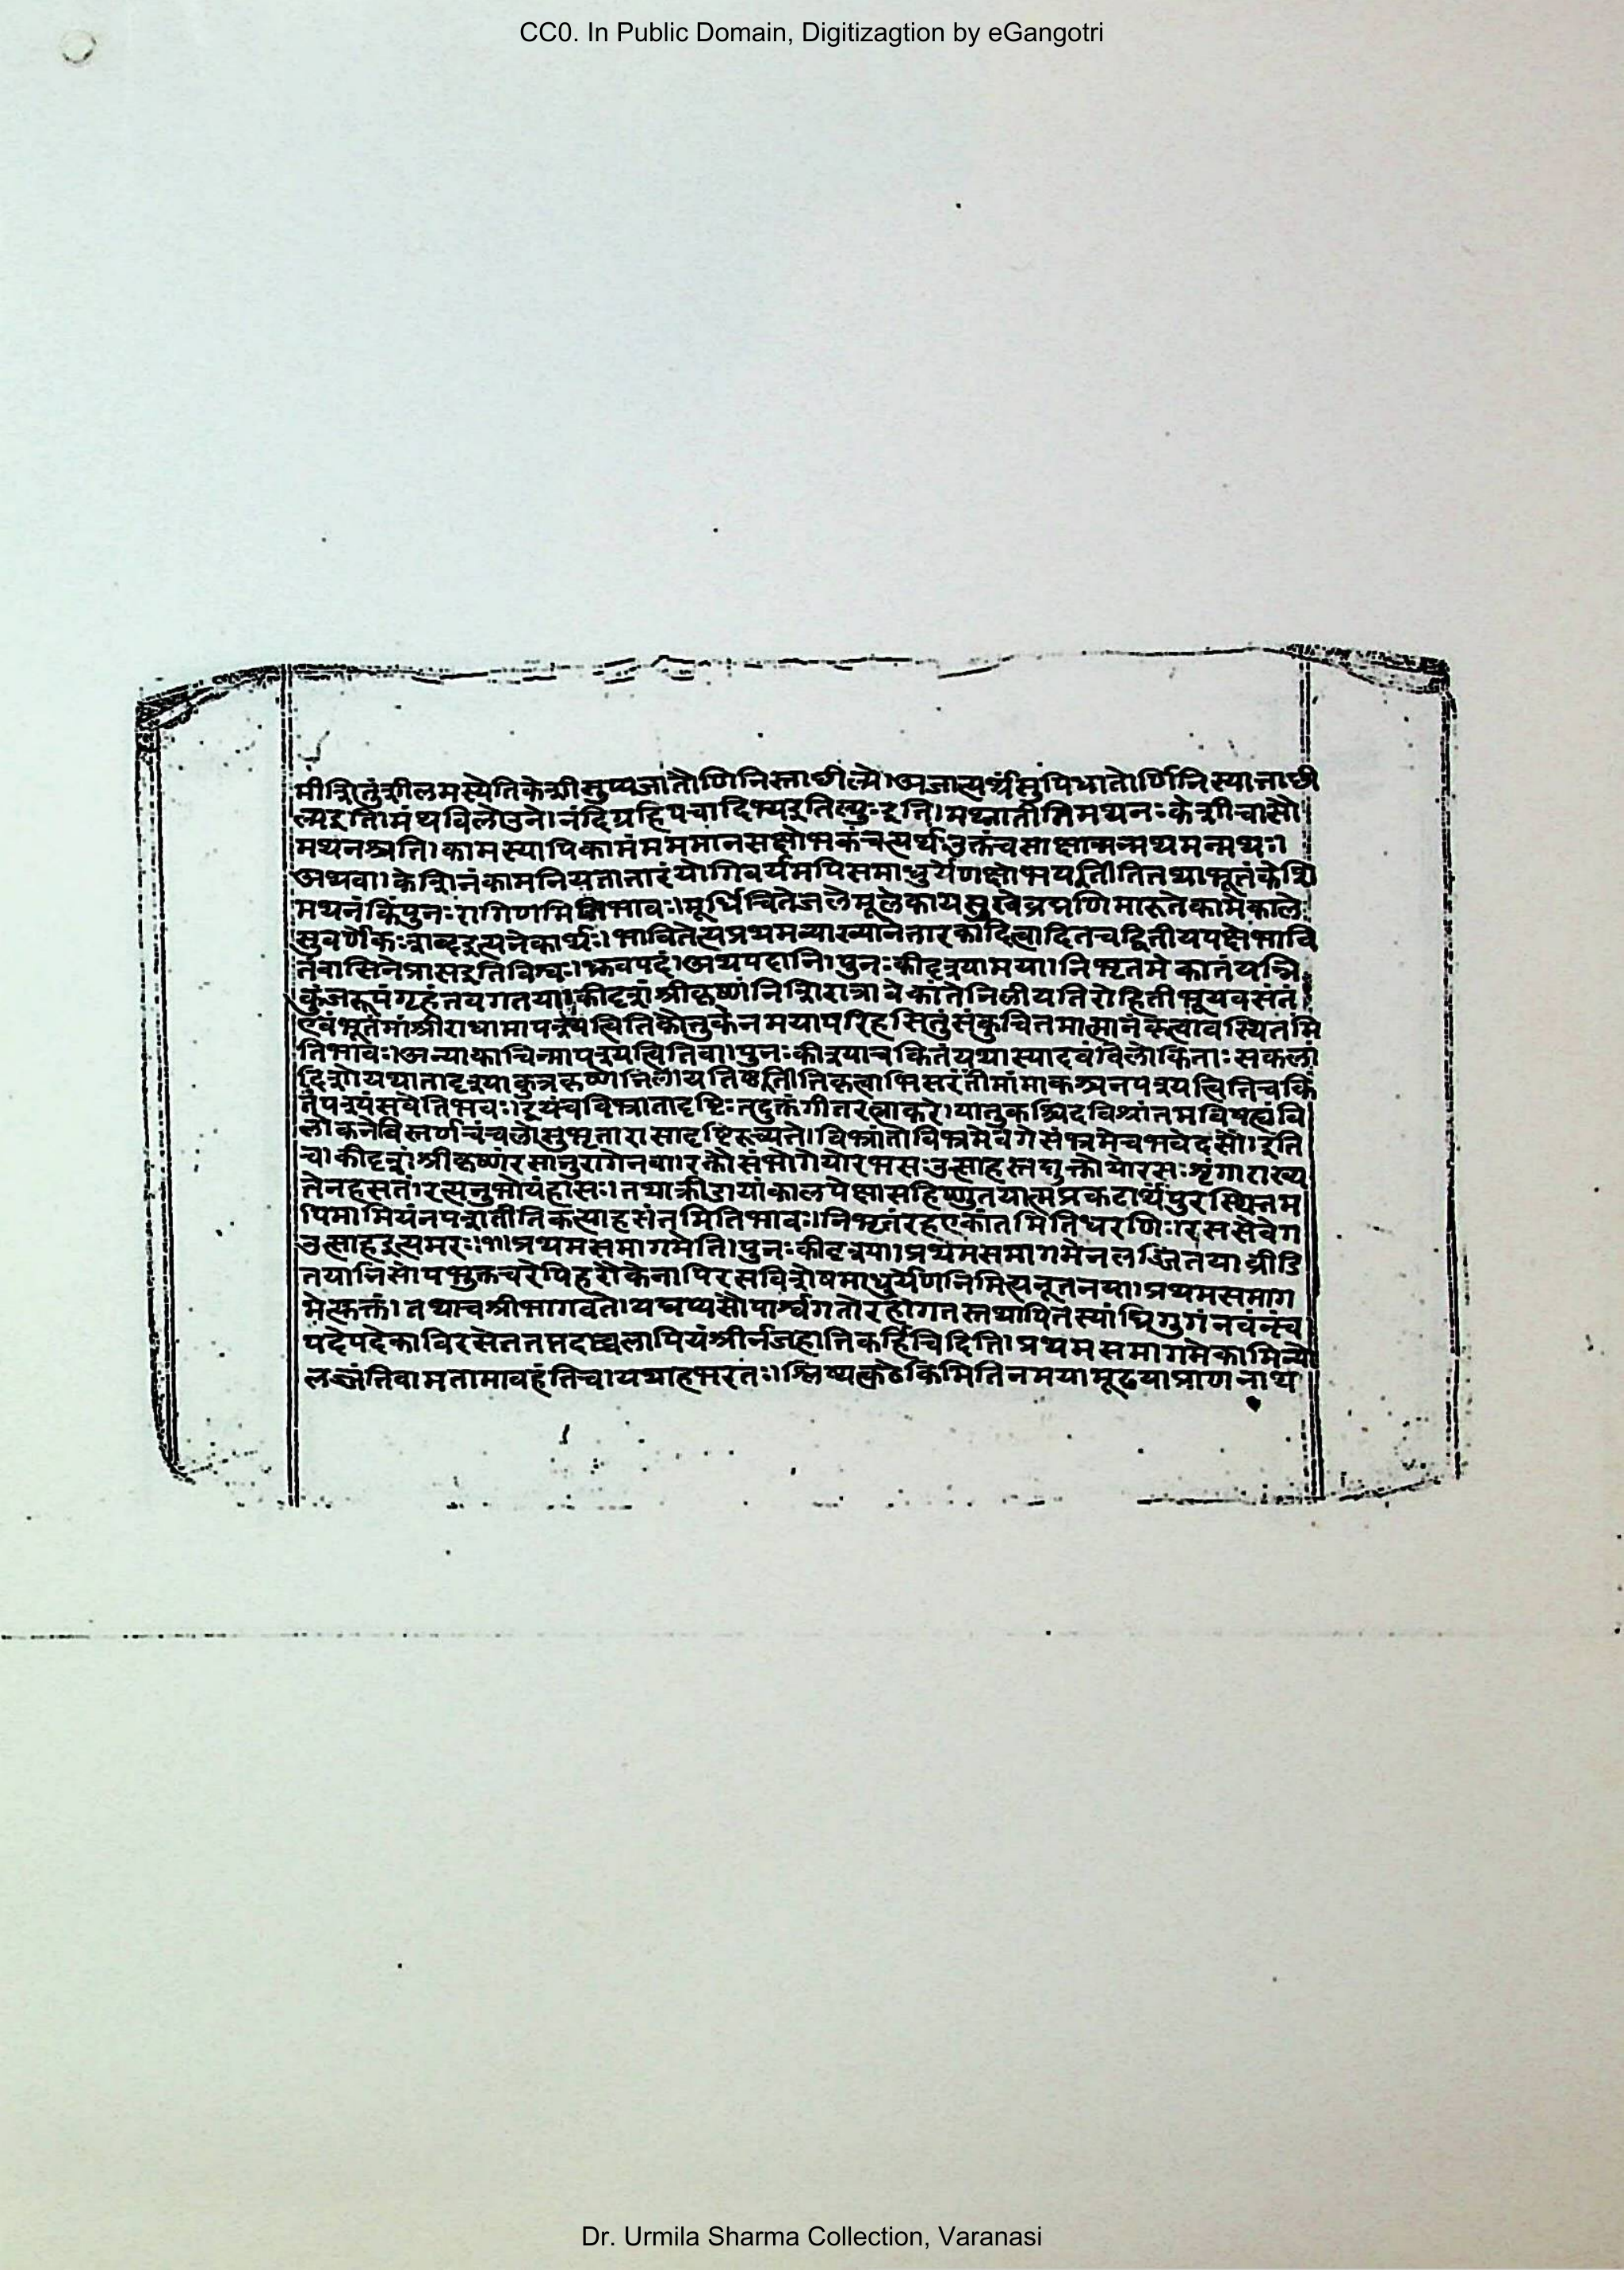 CC0. In Public Domain, Digitizagtion by eGangotri
मीशितुंशीलमस्येतिकेशीसुप्यजातौणिनिस्ताछील्ये।अजात्यर्थेसुपिधातोर्णिनिस्यात्ताछी
ल्यइति।मंथविलोडने।नंदिग्रहिपचादिभ्यइतिल्युःइति।मथ्नातीतिमथनःकेशीचासौ
मथनश्चति।कामस्यापिकामंमममानसक्षोभकंचत्यर्थउक्तंचसाक्षान्मन्मथमन्मथः
अथवा।केशिनंकामनियतातारंयोगिवर्यमपिसमाधुर्येणक्षोभयतीतितथाभूतंकेशि
मथनंकिंपुनःरागिणमितिभावः।मूर्ध्निचितेजलेमूलेकायसुखेब्रह्मणिमारुतेकामेकाले
सुवर्णेकःशब्दइत्यनेकार्थः।भावितेत्यप्रथमव्याख्यानेतारकादित्वादितचद्वितीयपक्षेभावि
तंवासितेप्राप्तइतिविश्वः।ध्रुवपदं।अथपदानि।पुनःकीदृश्यामया।निभृतमेकांतंयन्नि
कुंजरूपंगृहंतयगतया।कीदृशंश्रीकृष्णंनिशिरात्रावेकांतेनिलीयतिरोहितीभूयवसंतं
एवंभूतंमांश्रीराधामापश्यत्वितिकौतुकेनमयापरिहसितुंसंकुचितमात्मानंकृत्वावस्थितमि
तिभावः।अन्याकाचिन्मापश्यत्वितिवा।पुनःकीदृश्याचकितंयथास्यादेवंविलोकिताःसकला
दिशोययातादृश्याकुत्रकृष्णोनिलीयतिष्ठतीतिकृत्वाभिसरंतीमांमाकश्चनपश्यत्वितिचकि
तंपश्यंसवेतिभवः।इयंचविभ्रातादृष्टिःतदुक्तंगीतरत्नाकरे।यातुकश्चिदविश्रांतमविषह्यवि
लोकनेविस्तर्णचंचलोत्सुभृतारासादृष्टिरुच्यते।विभ्रांतोविभ्रमेवेगेसंभ्रमेचभवेदसौ।इति
च।कीदृशंश्रीकृष्णंरसानुरागेनवा।रक्तौसंभोगेयोरभसःउत्साहस्तद्युक्तोयोरसःशृंगाराख्य
तेनहसतं।रत्यनुभोयंहासः।तथाक्रीडायांकालपेक्षासहिष्णुतयात्मप्रकटार्थंपुरस्थितम
पिमामियंनपश्यतीतिकृत्वाहसंतमितिभावः।निभृतंरहएकांतमितिधरणिः।रसस्सेवेग
उत्साहइत्यमरः।१।प्रथमसमागमेति।पुनःकीदृश्या।प्रथमसमागमेनलज्जितयाव्रीडि
तयानिसोपभुक्तचरेपिहरौकेनापिरसविशेषमाधुर्येणनिमित्यनूतनया।प्रथमसमाग
मेत्युक्तं।तथाचश्रीभागवते।यद्यप्यसौपार्श्वगतोरहोगतस्तथापितस्यांघ्रियुगंनवंनव
पदेपदेकाविरसेतततपदाच्चलापियंश्रीर्नजहातिकर्हिचिदिति।प्रथमसमागमेकामिन्यो
लज्जंतिवामतामावहंतिच।यथाहभरतः।श्लिष्यत्कंठेकिमितिनमयामूढयाप्राणनाथ
Dr. Urmila Sharma Collection, Varanasi